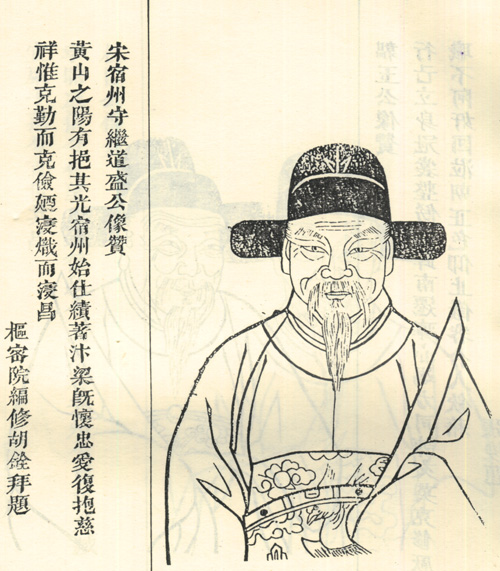 宋宿州守繼道盛公像贊
黃山之陽有挹其光宿州始仕績著汴梁既懷忠愛復抱慈
祥惟克勤而克儉廼寖熾而寖昌
樞密院編修胡銓拜題